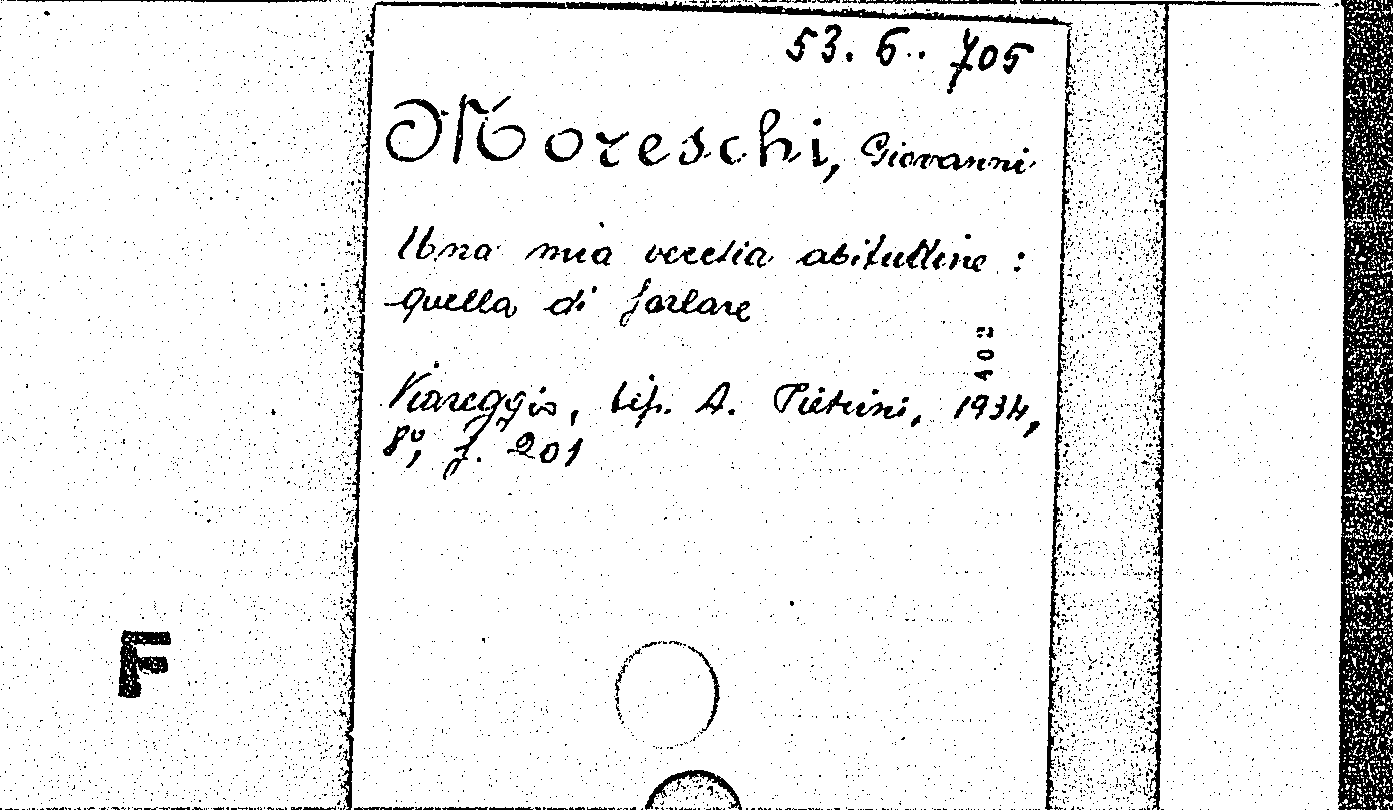 53. 6.. 705
Moreschi, Giovanni
Una mia vecchia abitudine :
quella di parlare
102
Viareggio, tip. A. Pietrini, 1934,
8º, p. 201
F